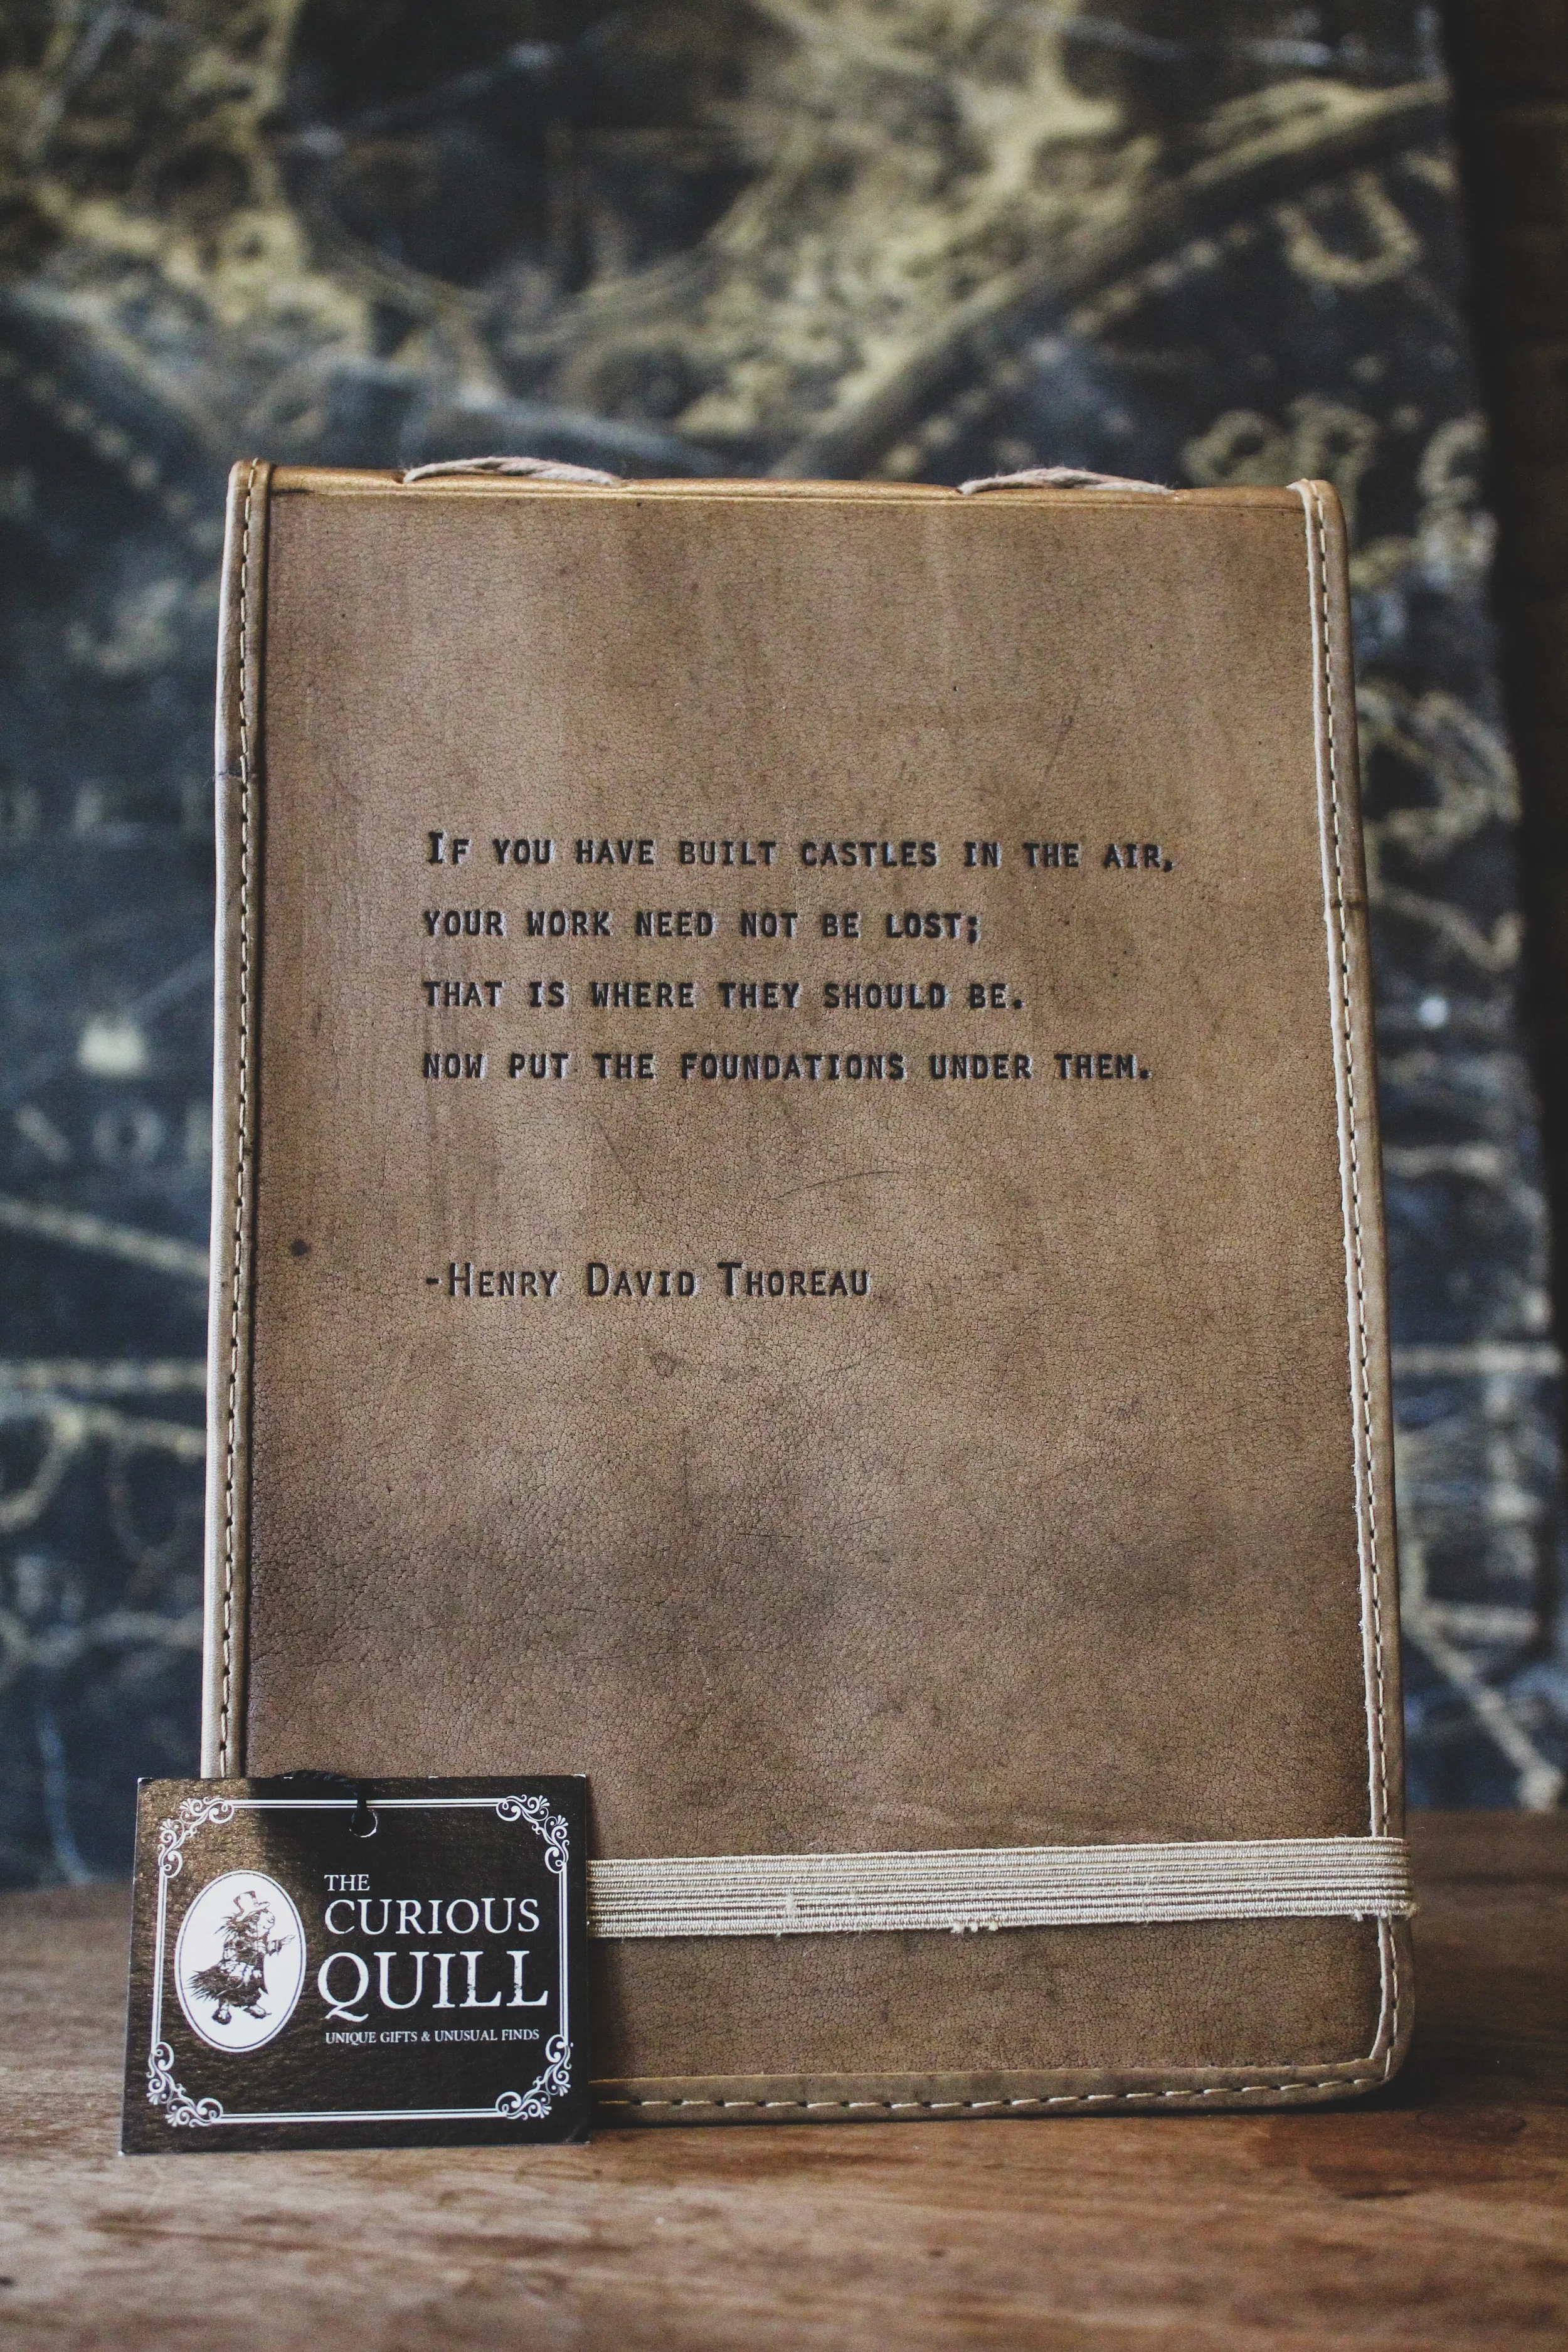 If you have built castles in the air,
your work need not be lost;
that is where they should be.
now put the foundations under them.
-Henry David Thoreau
THE
CURIOUS
QUILL
UNIQUE GIFTS & UNUSUAL FINDS